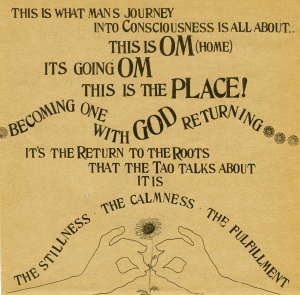 THIS IS WHAT MANS JOURNEY
INTO CONSCIOUSNESS IS ALL ABOUT..
THIS IS OM (HOME)
ITS GOING OM
THIS IS THE PLACE!
BECOMING ONE
WITH GOD RETURNING
IT'S THE RETURN TO THE ROOTS
THAT THE TAO TALKS ABOUT
IT IS
THE STILLNESS · THE CALMNESS · THE FULFILLMENT